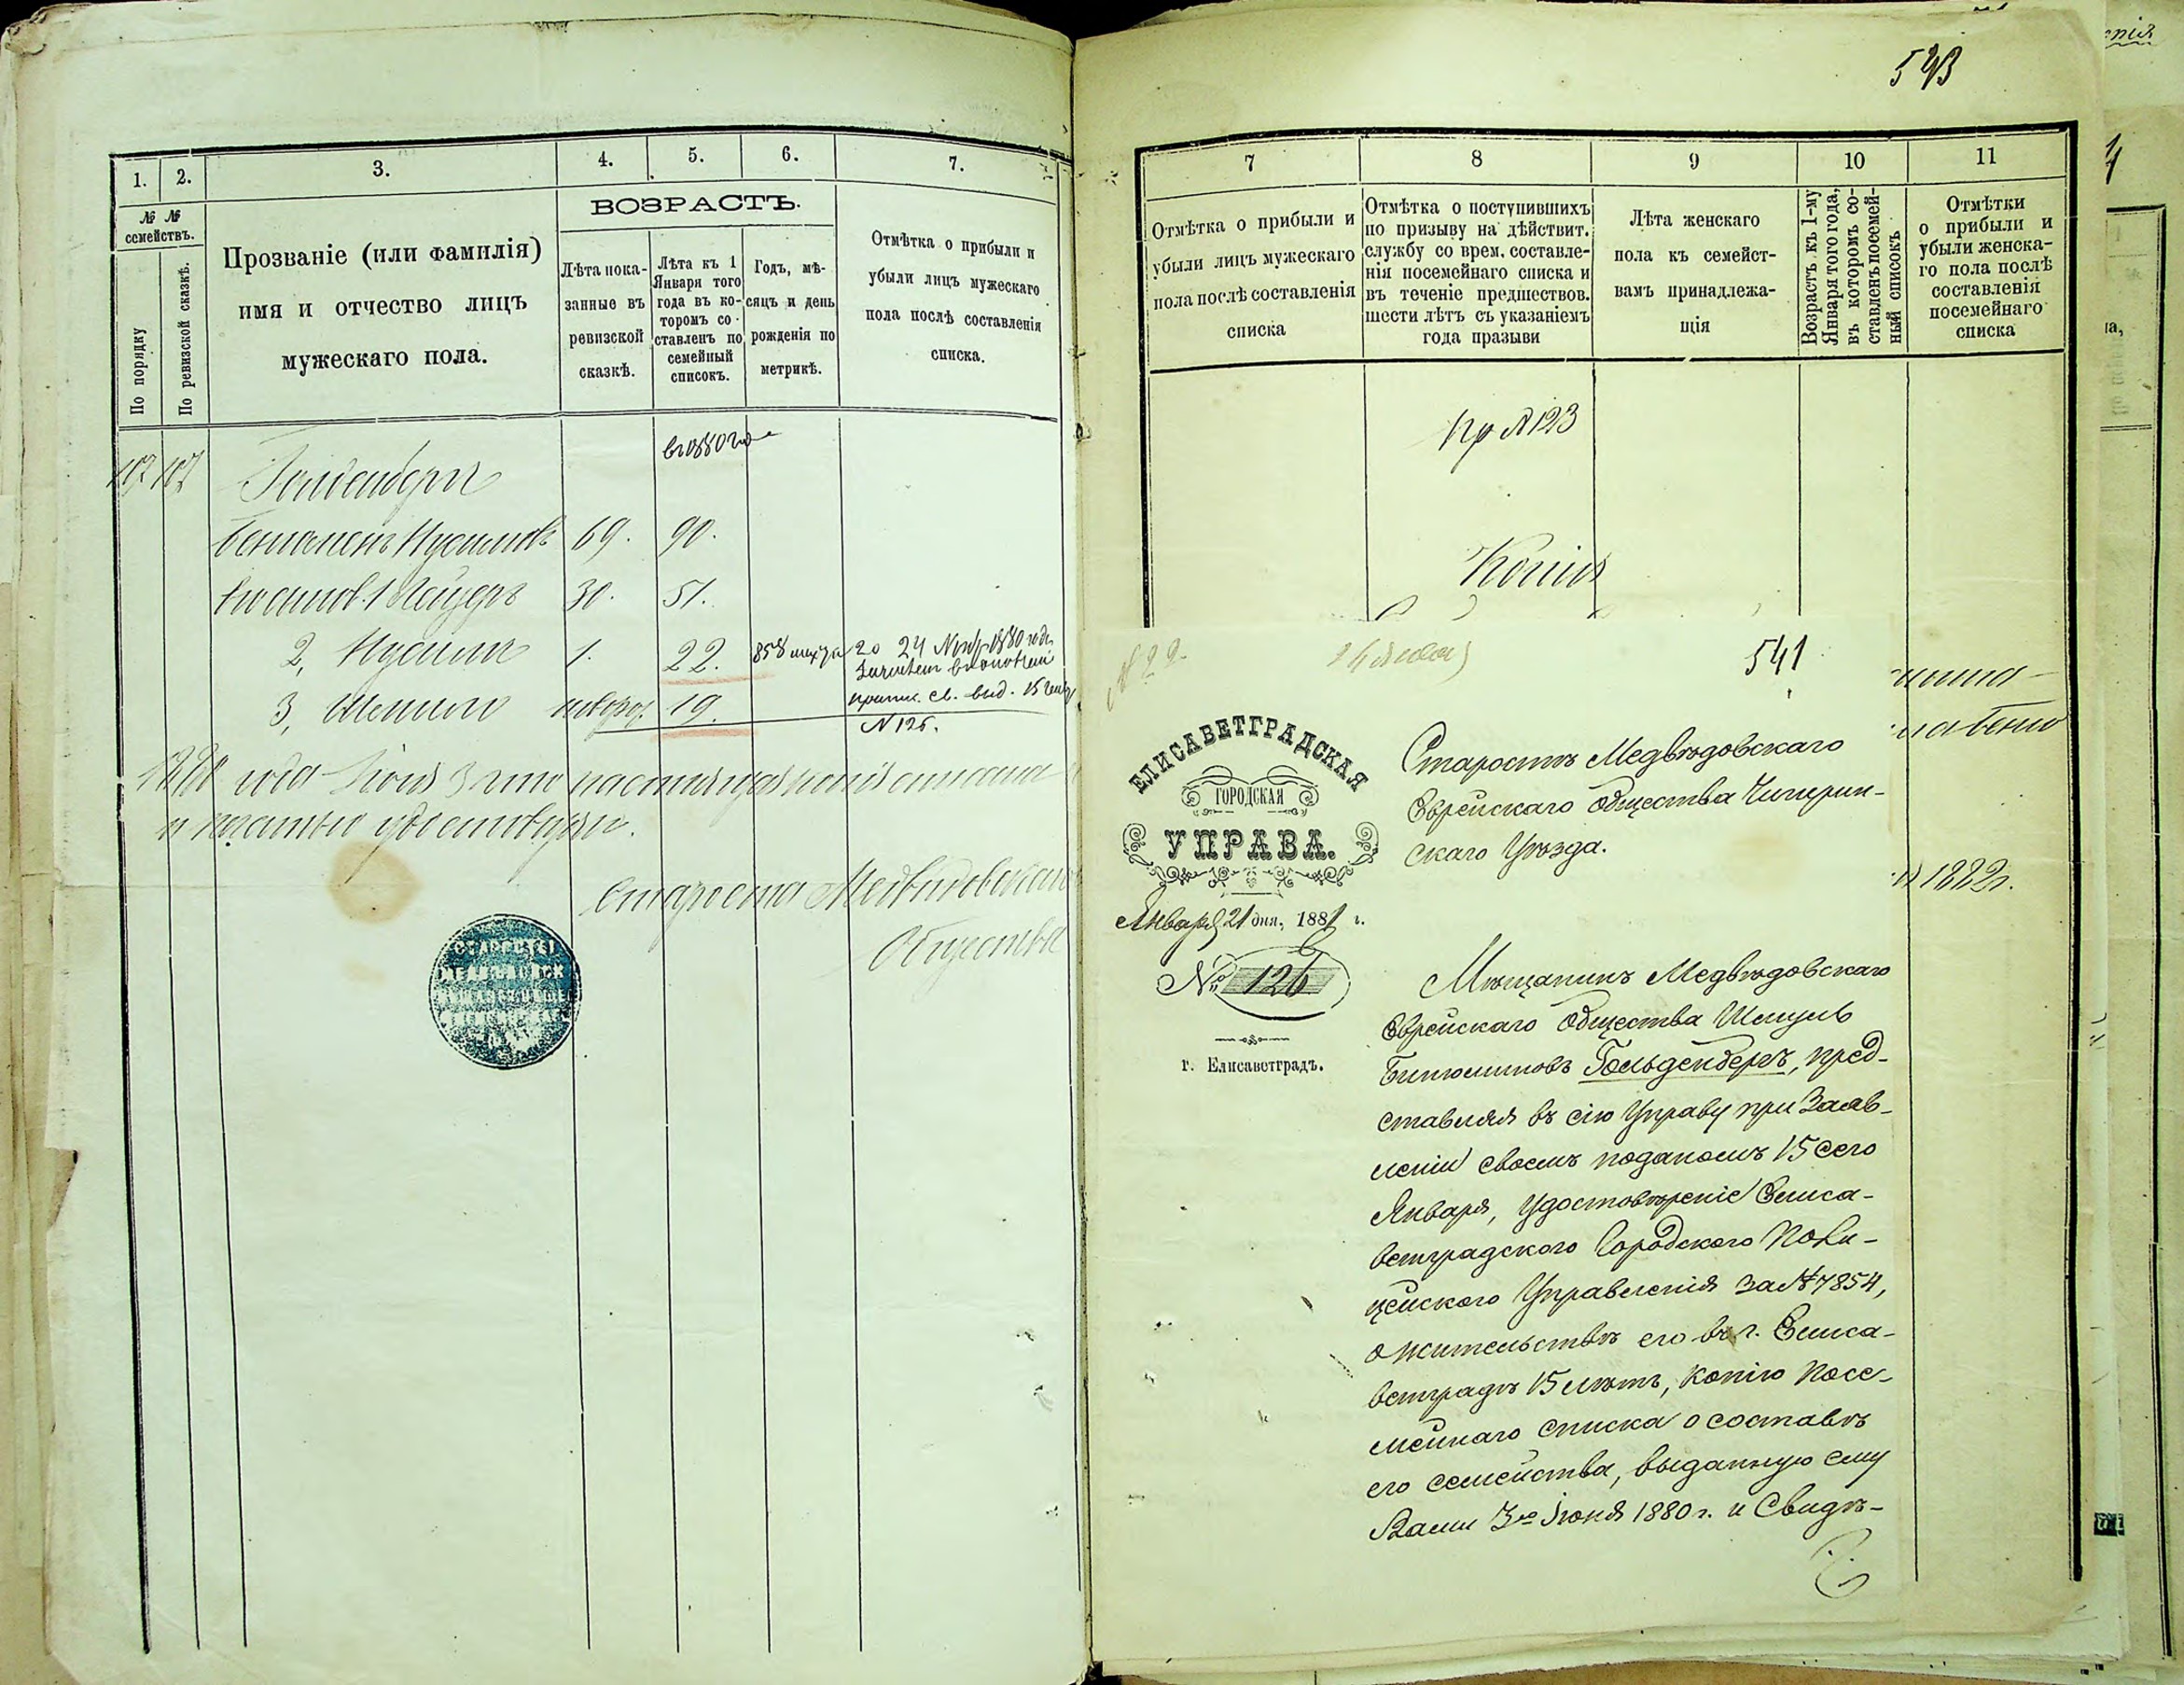 1. 2. 3. 4. 5. 6. 7.
№ № семействъ.
По порядку
По ревизской сказкѣ.
Прозваніе (или фамилія)
имя и отчество лицъ
мужескаго пола.
ВОЗРАСТЪ.
Лѣта пока-
занные въ
ревизской
сказкѣ.
Лѣта къ 1
Января того
года въ ко-
торомъ со-
ставленъ по
семейный
списокъ.
Годъ, мѣ-
сяцъ и день
рожденія по
метрикѣ.
Отмѣтка о прибыли и
убыли лицъ мужескаго
пола послѣ составленія
списка.
107 107 Гольденбергъ
69. 90.
30. 51.
2, Нусимъ 1. 22.
20 24 1880 года
3, Шмуль 19.
№ 126.
1880 года Іюня 3 дня настоящая копія списана
и печатью удостовѣрена.
Староста Медвѣдовскаго
Общества
543
7 8 9 10 11
Отмѣтка о прибыли и
убыли лицъ мужескаго
пола послѣ составленія
списка
Отмѣтка о поступившихъ
по призыву на дѣйствит.
службу со врем. составле-
нія посемейнаго списка и
въ теченіе предшествов.
шести лѣтъ съ указаніемъ
года празыви
Лѣта женскаго
пола къ семейст-
вамъ принадлежа-
щія
Возрастъ къ 1-му
Января того года,
въ которомъ со-
ставленъ посемей-
ный списокъ
Отмѣтки
о прибыли и
убыли женска-
го пола послѣ
составленія
посемейнаго
списка
Пр № 123
Копія
№ 22.
541
ЕЛИСАВЕТГРАДСКАЯ
ГОРОДСКАЯ
УПРАВА.
Января 21 дня, 1881 г.
№ 126
г. Елисаветградъ.
Старостѣ Медвѣдовскаго
Еврейскаго Общества Чигирин-
скаго Уѣзда.
1882г.
Мѣщанинъ Медвѣдовскаго
Еврейскаго Общества Шмуль
Биньоминовъ Гольденбергъ, пред-
ставляя въ сію Управу при Заяв-
леніи своемъ поданомъ 15 сего
Января, Удостовѣреніе Елиса-
ветградского Городского Поли-
цейского Управленія за № 7854,
о жительствѣ его въ г. Елиса-
ветградѣ 15 лѣтъ, копію Посе-
мейнаго списка о составѣ
его семейства, выданную ему
Вами 3го Іюня 1880 г. и Свидѣ-